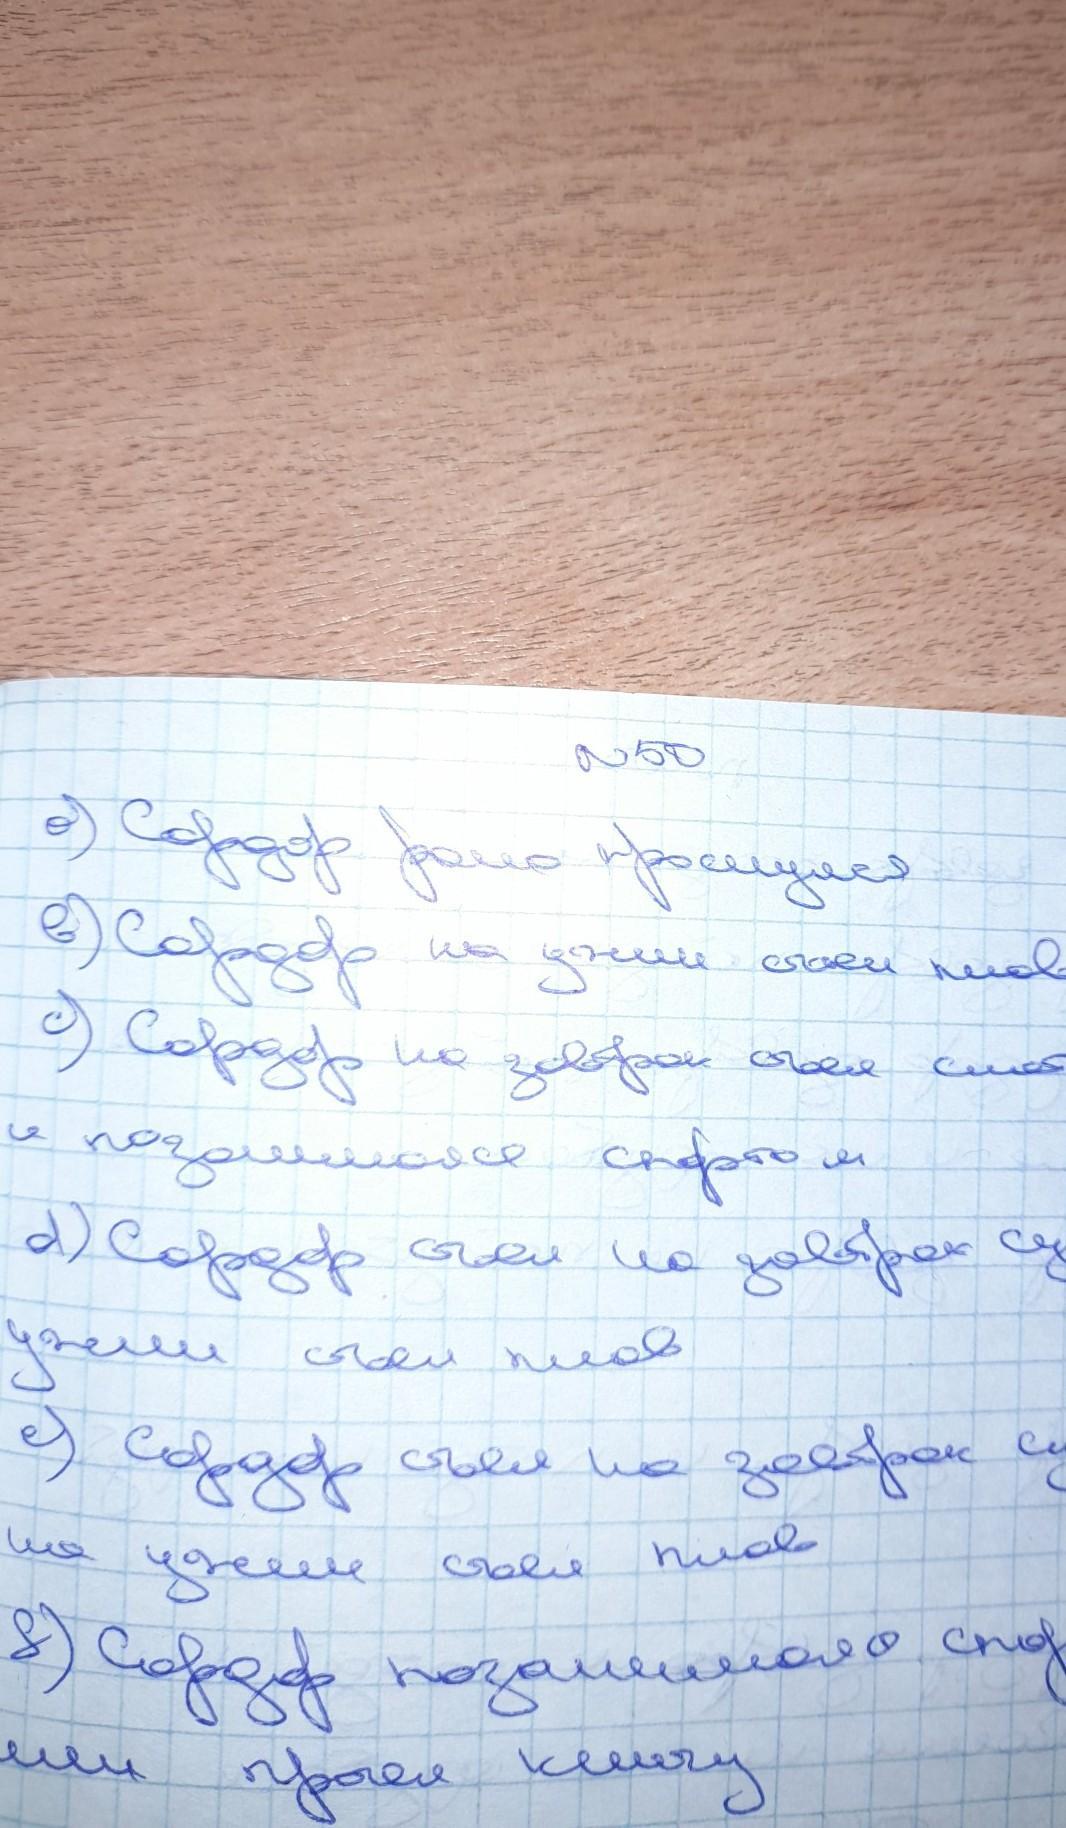 №50
a) Сардор рано проснулся
b) Сардор на ужин съел плов
c) Сардор на завтрак съел
и позанимался спортом
d) Сардор съел на завтрак су
ужин съел плов
e) Сардор съел на завтрак су
на ужин съел плов
f) Сардор позанимался спор
или прочел книгу